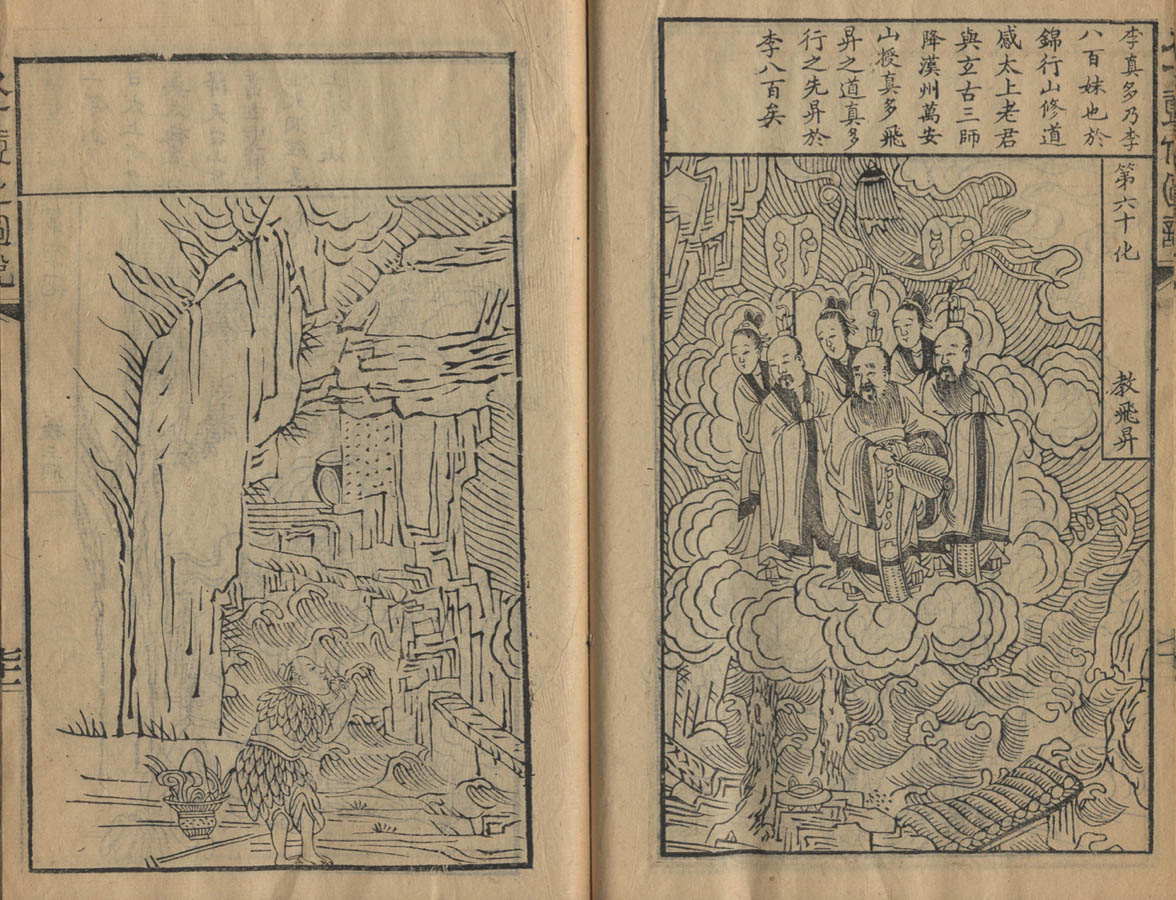 李真多乃李
八百妹也於
錦行山修道
感太上老君
與立古三師
降漢州萬安
山授真多飛
昇之道真多
行之先昇於
李八百矣
第六十化 教飛昇